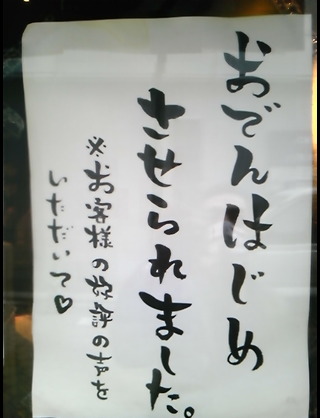 おでんはじめ
させられました。
※お客様の好評の声を
いただいて♡